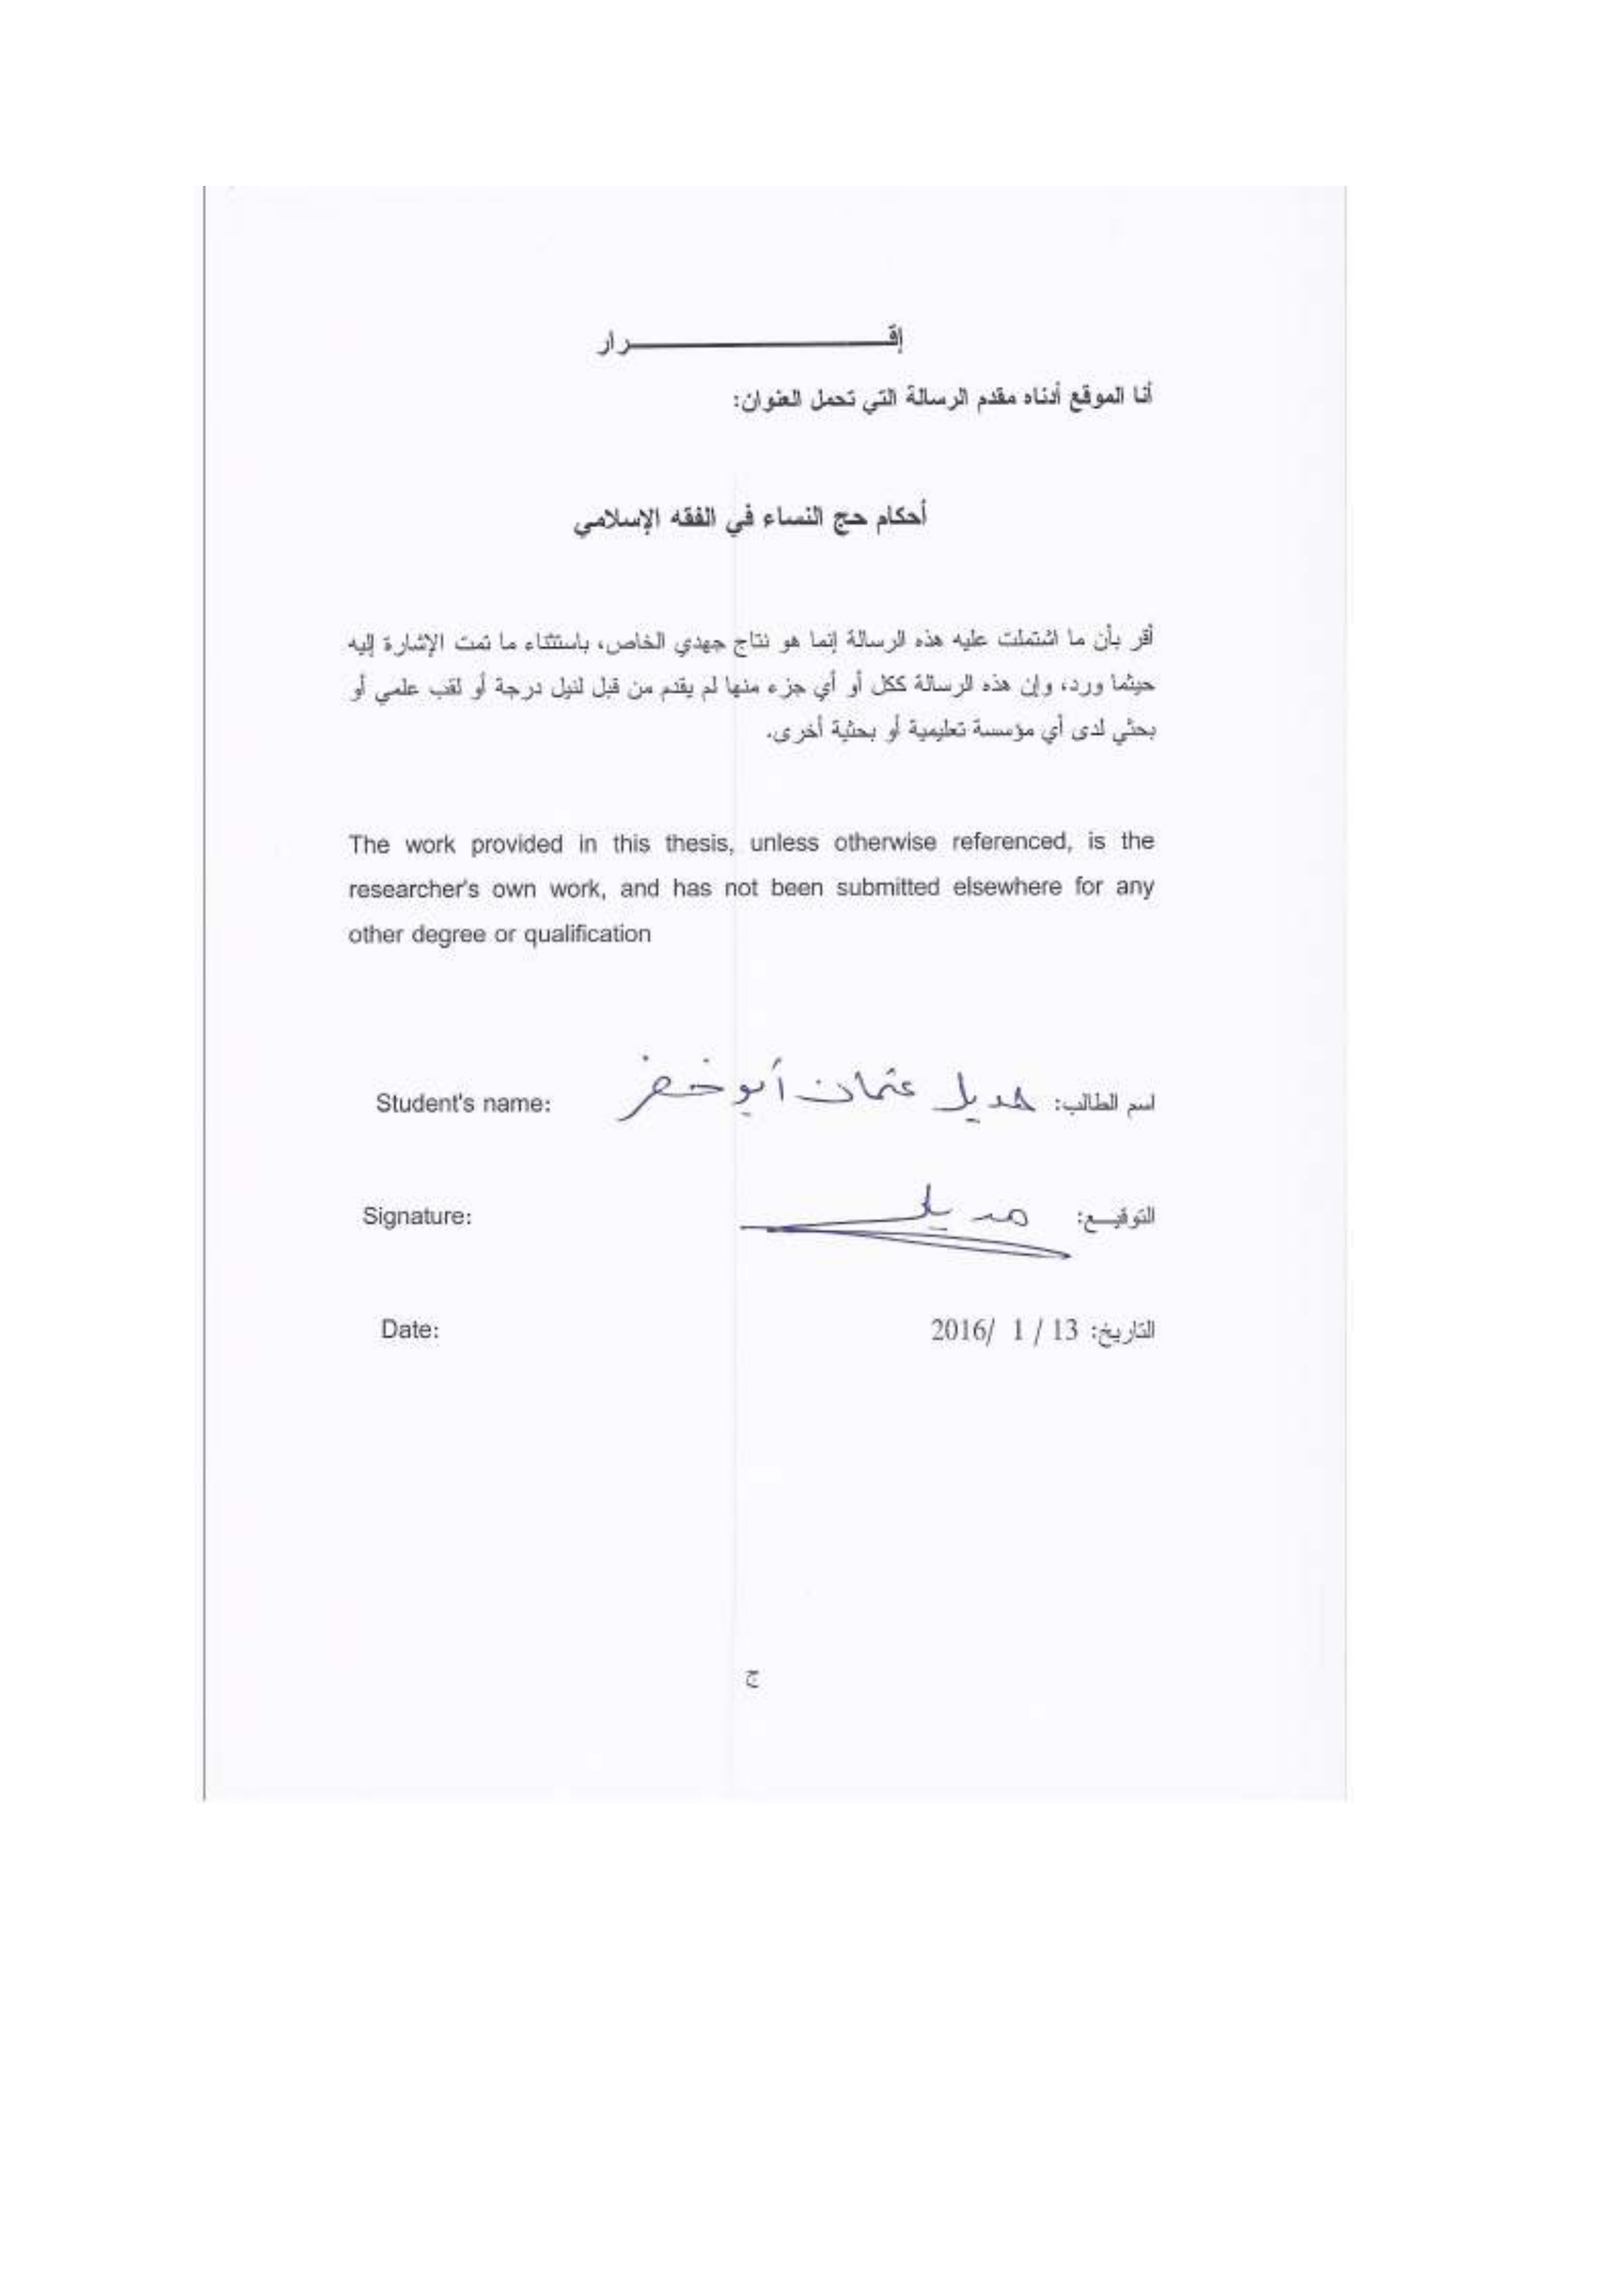 إقـــــــــــــــــرار
أنا الموقع أدناه مقدم الرسالة التي تحمل العنوان:
أحكام حج النساء في الفقه الإسلامي
أقر بأن ما اشتملت عليه هذه الرسالة إنما هو نتاج جهدي الخاص، باستثناء ما تمت الإشارة إليه
حيثما ورد، وإن هذه الرسالة ككل أو أي جزء منها لم يقدم من قبل لنيل درجة أو لقب علمي أو
بحثي لدى أي مؤسسة تعليمية أو بحثية أخرى.
The work provided in this thesis, unless otherwise referenced, is the
researcher's own work, and has not been submitted elsewhere for any
other degree or qualification
اسم الطالب: هديل عثمان أبو خضر Student's name:
التوقيـع: هديل Signature:
التاريخ: 13 / 1 /2016 Date:
ج